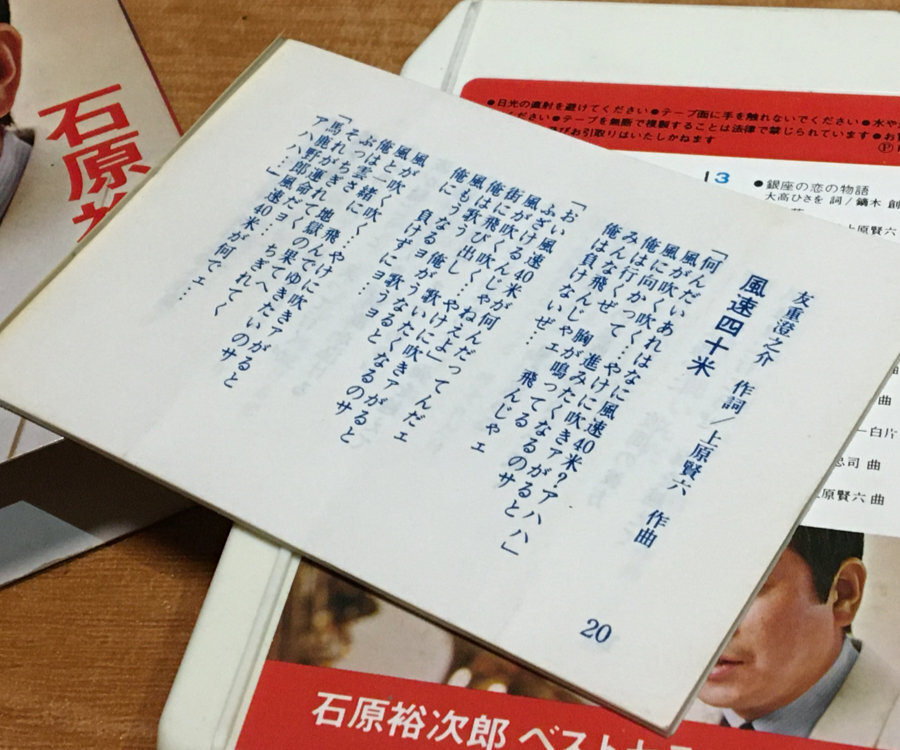 石原裕
●日光の直射を避けてください●テープ面に手を触れないでください●水や
ください●テープを無断で複製することは法律で禁じられています●お
びお引取りはいたしかねます
13
●銀座の恋の物語
大高ひさを 詞/鏑木 創
上原賢六
曲
白片
忠司 曲
上原賢六 曲
友重澄之介 作詞/上原賢六 作曲
風速四十米
「何んだいあれはなに風速40米?アハハ」
風が吹く吹く…やけに吹きァがると
風に向かって 進みたくなるのサ
俺は行くぜ 胸が鳴ってる
みんな飛ばせ 飛んじゃェ
俺は負けないぜ…
「おい風速40米が何んだってんだェ
ふざけるんじゃねえよ」
風が吹く吹く…やけに吹きァがると
街に飛び出し 歌いたくなるのサ
俺は歌う 俺がうなると
風もうなるヨ 歌うヨ
俺に負けずにヨ…
風が吹く吹く…やけに吹きァがると
風と一緒に 飛んでゆきたいのサ
俺は雲さ 地獄の果てへ
ぶっちぎれて ちぎれてく
それが運命だョ…
「馬鹿野郎風速40米が何でェ…
アハハハ…」
20
石原裕次郎 ベスト